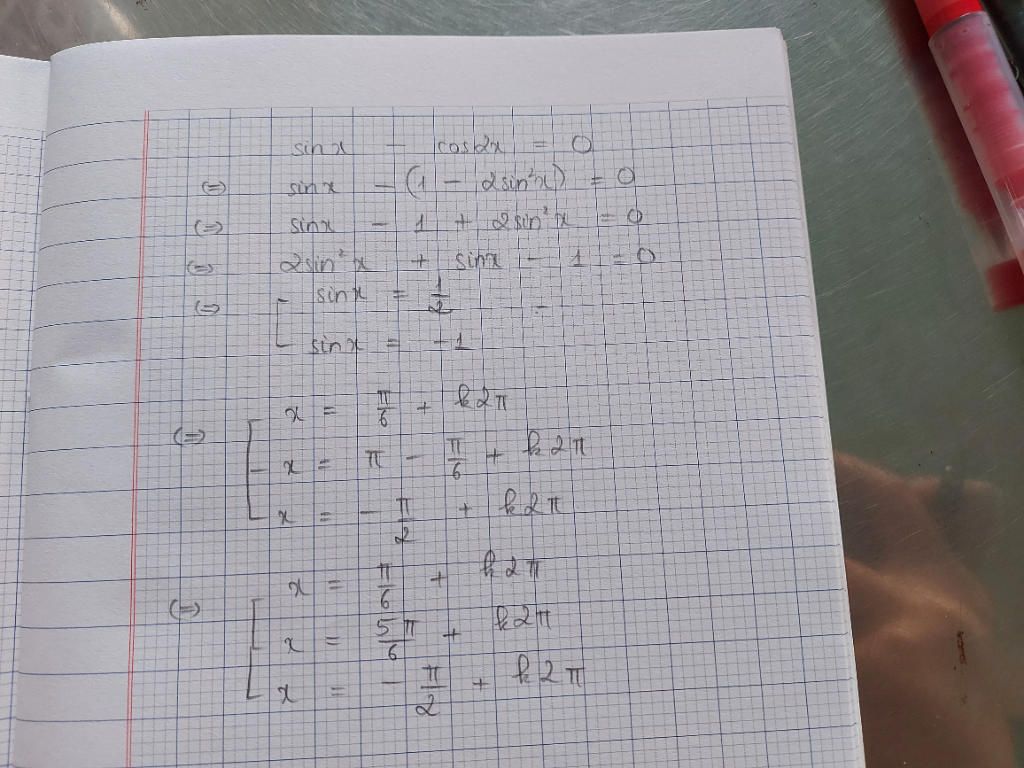 sinx - cos2x = 0
(=) sinx - (1 - 2sin²x) = 0
(=) sinx - 1 + 2sin²x = 0
(=) 2sin²x + sinx - 1 = 0
(=) [ sinx = 1/2
sinx = -1
(=) [ x = π/6 + k2π
x = π - π/6 + k2π
x = -π/2 + k2π
(=) [ x = π/6 + k2π
x = 5π/6 + k2π
x = -π/2 + k2π